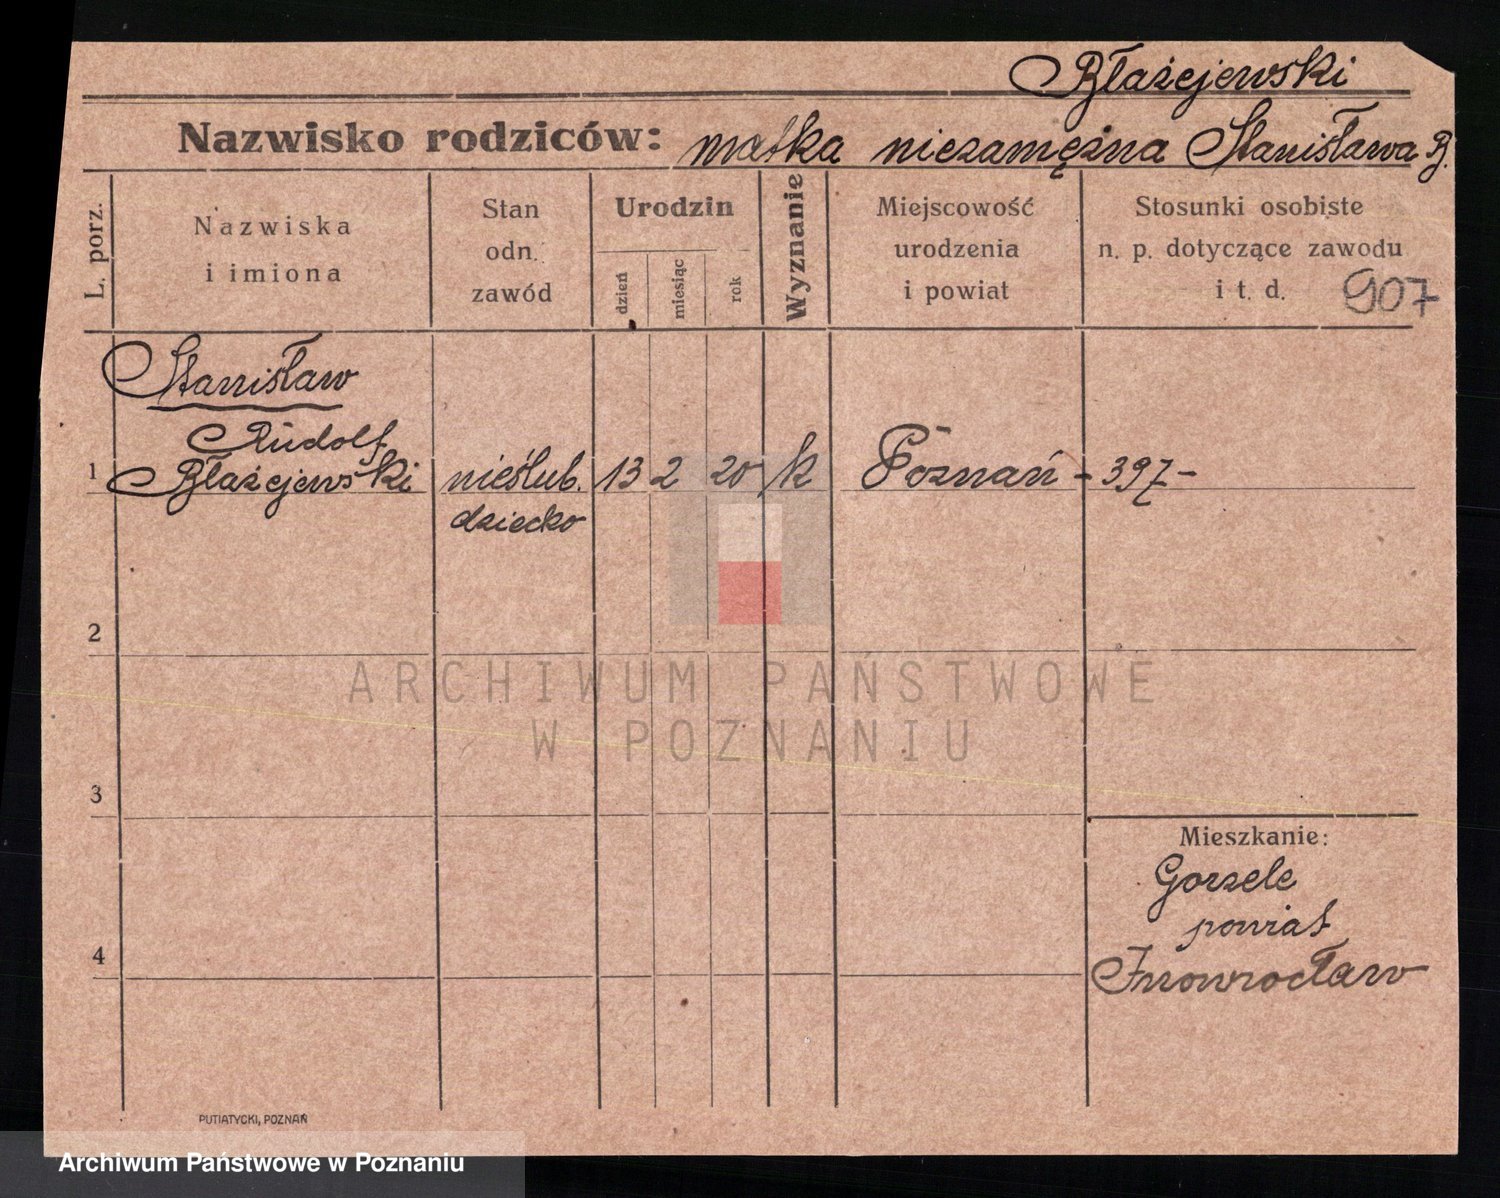 Błażejewski
Nazwisko rodziców: matka niezamężna Stanisława B.
L. porz.
Nazwiska
i imiona
Stan
odn.
zawód
Urodzin
dzień
miesiąc
rok
Wyznanie
Miejscowość
urodzenia
i powiat
Stosunki osobiste
n. p. dotyczące zawodu
i t. d. 907
Stanisław
Rudolf
1 Błażejewski nieślub. 13 2 20 k Poznań - 397 -
dziecko
2
3
4
Mieszkanie:
Gorzele
powiat
Inowrocław
ARCHIWUM PAŃSTWOWE
W POZNANIU
PUTIATYCKI, POZNAŃ
Archiwum Państwowe w Poznaniu